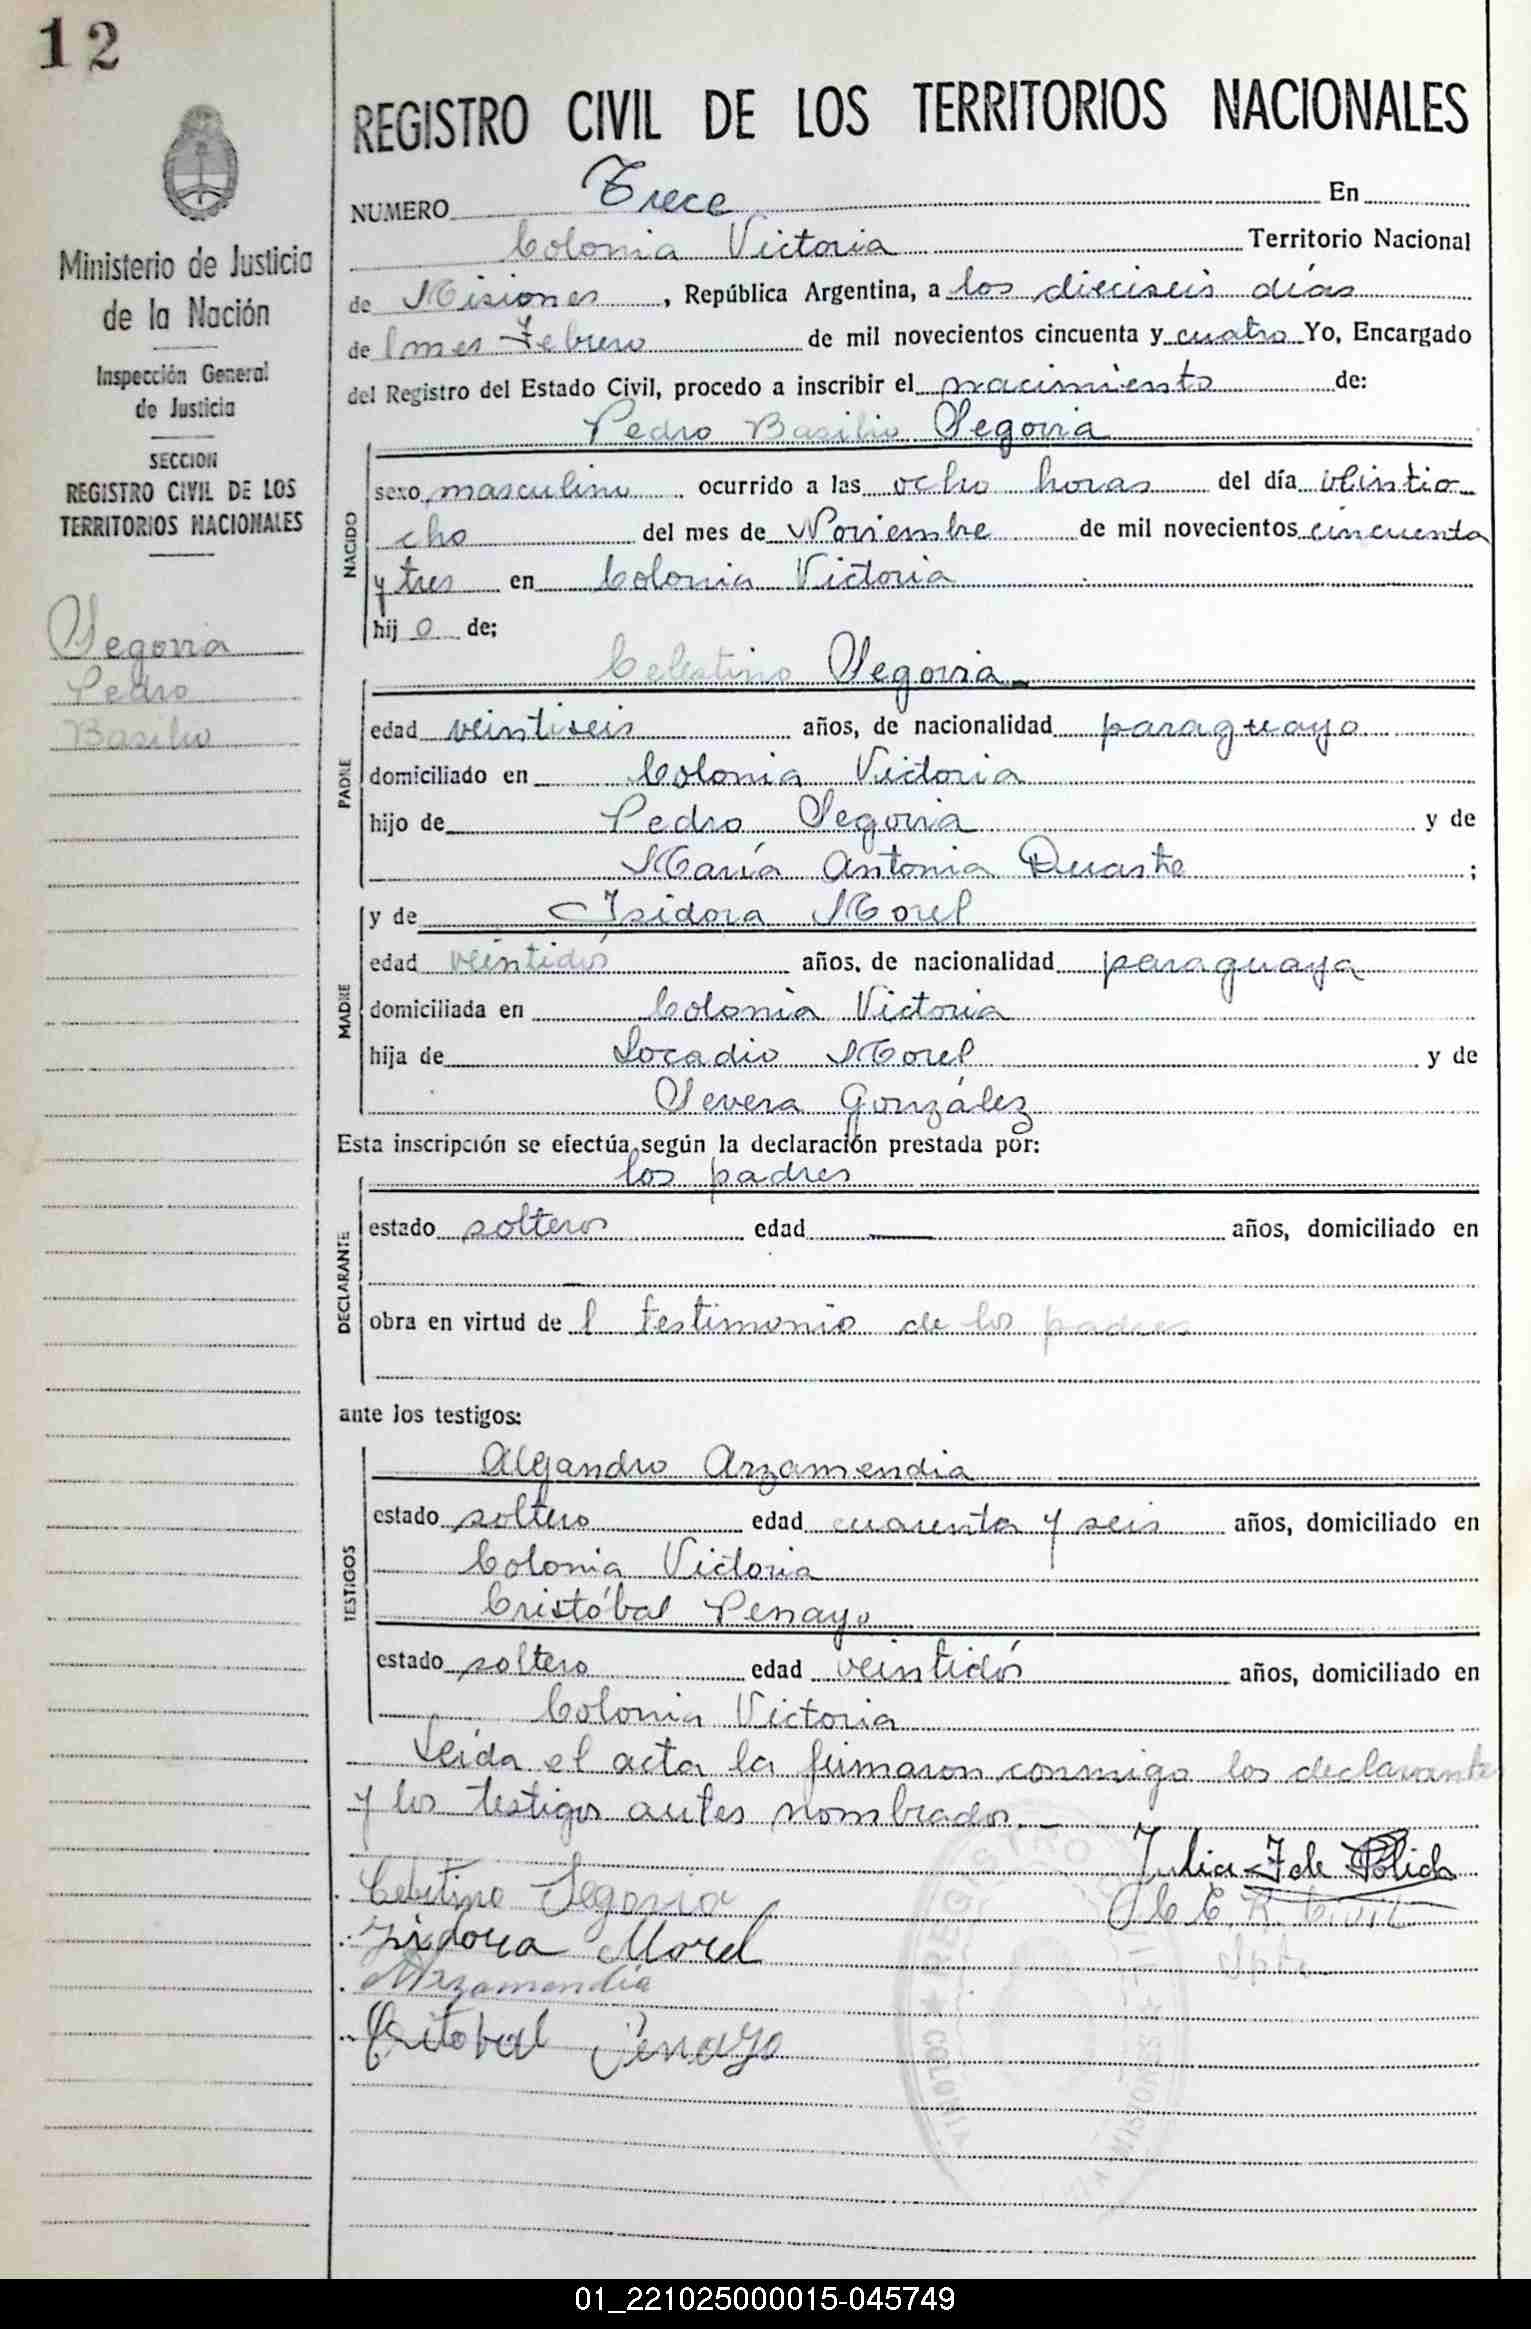 12
Ministerio de Justicia
de la Nación
Inspección General
de Justicia
SECCION
REGISTRO CIVIL DE LOS
TERRITORIOS NACIONALES
Segovia
Pedro
Basilio
REGISTRO CIVIL DE LOS TERRITORIOS NACIONALES
NUMERO Trece En
Colonia Victoria Territorio Nacional
de Misiones, República Argentina, a los dieciseis días
del mes Febrero de mil novecientos cincuenta y cuatro Yo, Encargado
del Registro del Estado Civil, procedo a inscribir el nacimiento de:
Pedro Basilio Segovia
NACIDO
sexo masculino ocurrido a las ocho horas del día veintio
cho del mes de Noviembre de mil novecientos cincuenta
y tres en Colonia Victoria
hijo de;
Celestino Segovia
PADRE
edad veintiseis años, de nacionalidad paraguayo
domiciliado en Colonia Victoria
hijo de Pedro Segovia y de
María Antonia Duarte ;
y de Isidora Morel
MADRE
edad veintidós años, de nacionalidad paraguaya
domiciliada en Colonia Victoria
hija de Locadio Morel y de
Severa González
Esta inscripción se efectúa según la declaración prestada por:
los padres
DECLARANTE
estado solteros edad — años, domiciliado en
—
obra en virtud del testimonio de los padres
ante los testigos:
TESTIGOS
Alejandro Arzamendia
estado soltero edad cuarenta y seis años, domiciliado en
Colonia Victoria
Cristóbal Penayo
estado soltero edad veintidós años, domiciliado en
Colonia Victoria
Leída el acta la firmaron conmigo los declarante
y los testigos antes nombrados.—
Julia F de
Celetino Segovia
R. Civil
Isidora Morel
Arzamendia
Critobal Penayo
REGISTRO CIVIL
COLONIA MISIONES
01_221025000015-045749